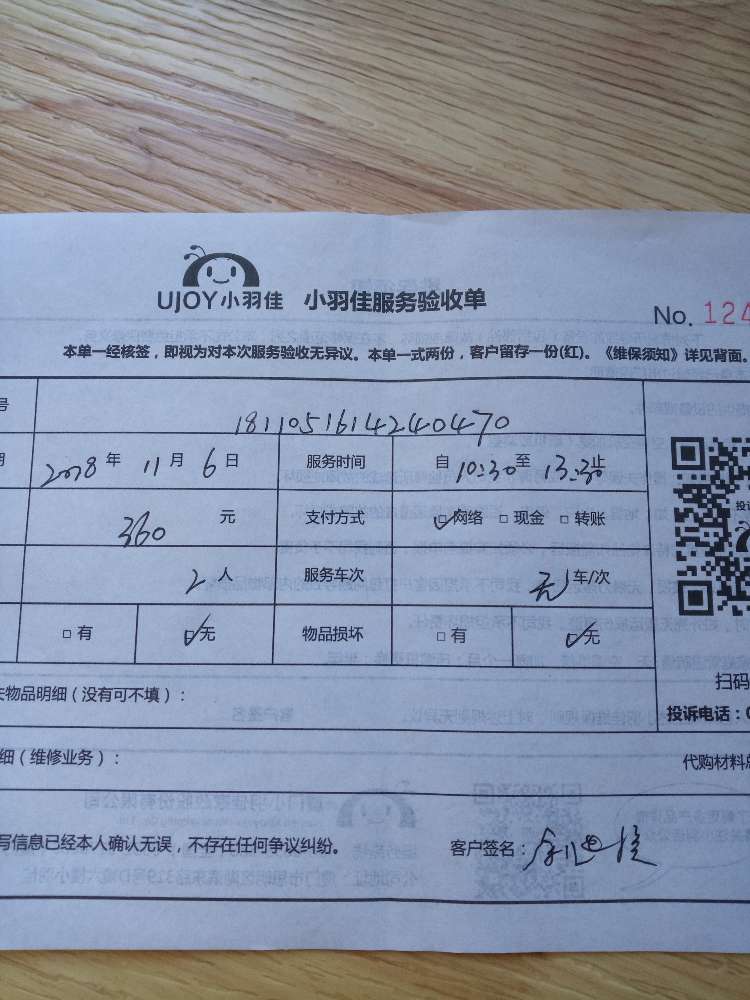 UJOY小羽佳 小羽佳服务验收单
No. 124
本单一经核签，即视为对本次服务验收无异议。本单一式两份，客户留存一份(红)。《维保须知》详见背面。
号 1811051614240470
期 2018 年 11 月 6 日 服务时间 自 10:30 至 13:30 止
360 元 支付方式 ☑网络 □现金 □转账
2 人 服务车次 无 车/次
□有 ☑无 物品损坏 □有 ☑无
失物品明细（没有可不填）：
扫码
投诉电话：0
细（维修业务）： 代购材料总
写信息已经本人确认无误，不存在任何争议纠纷。 客户签名：